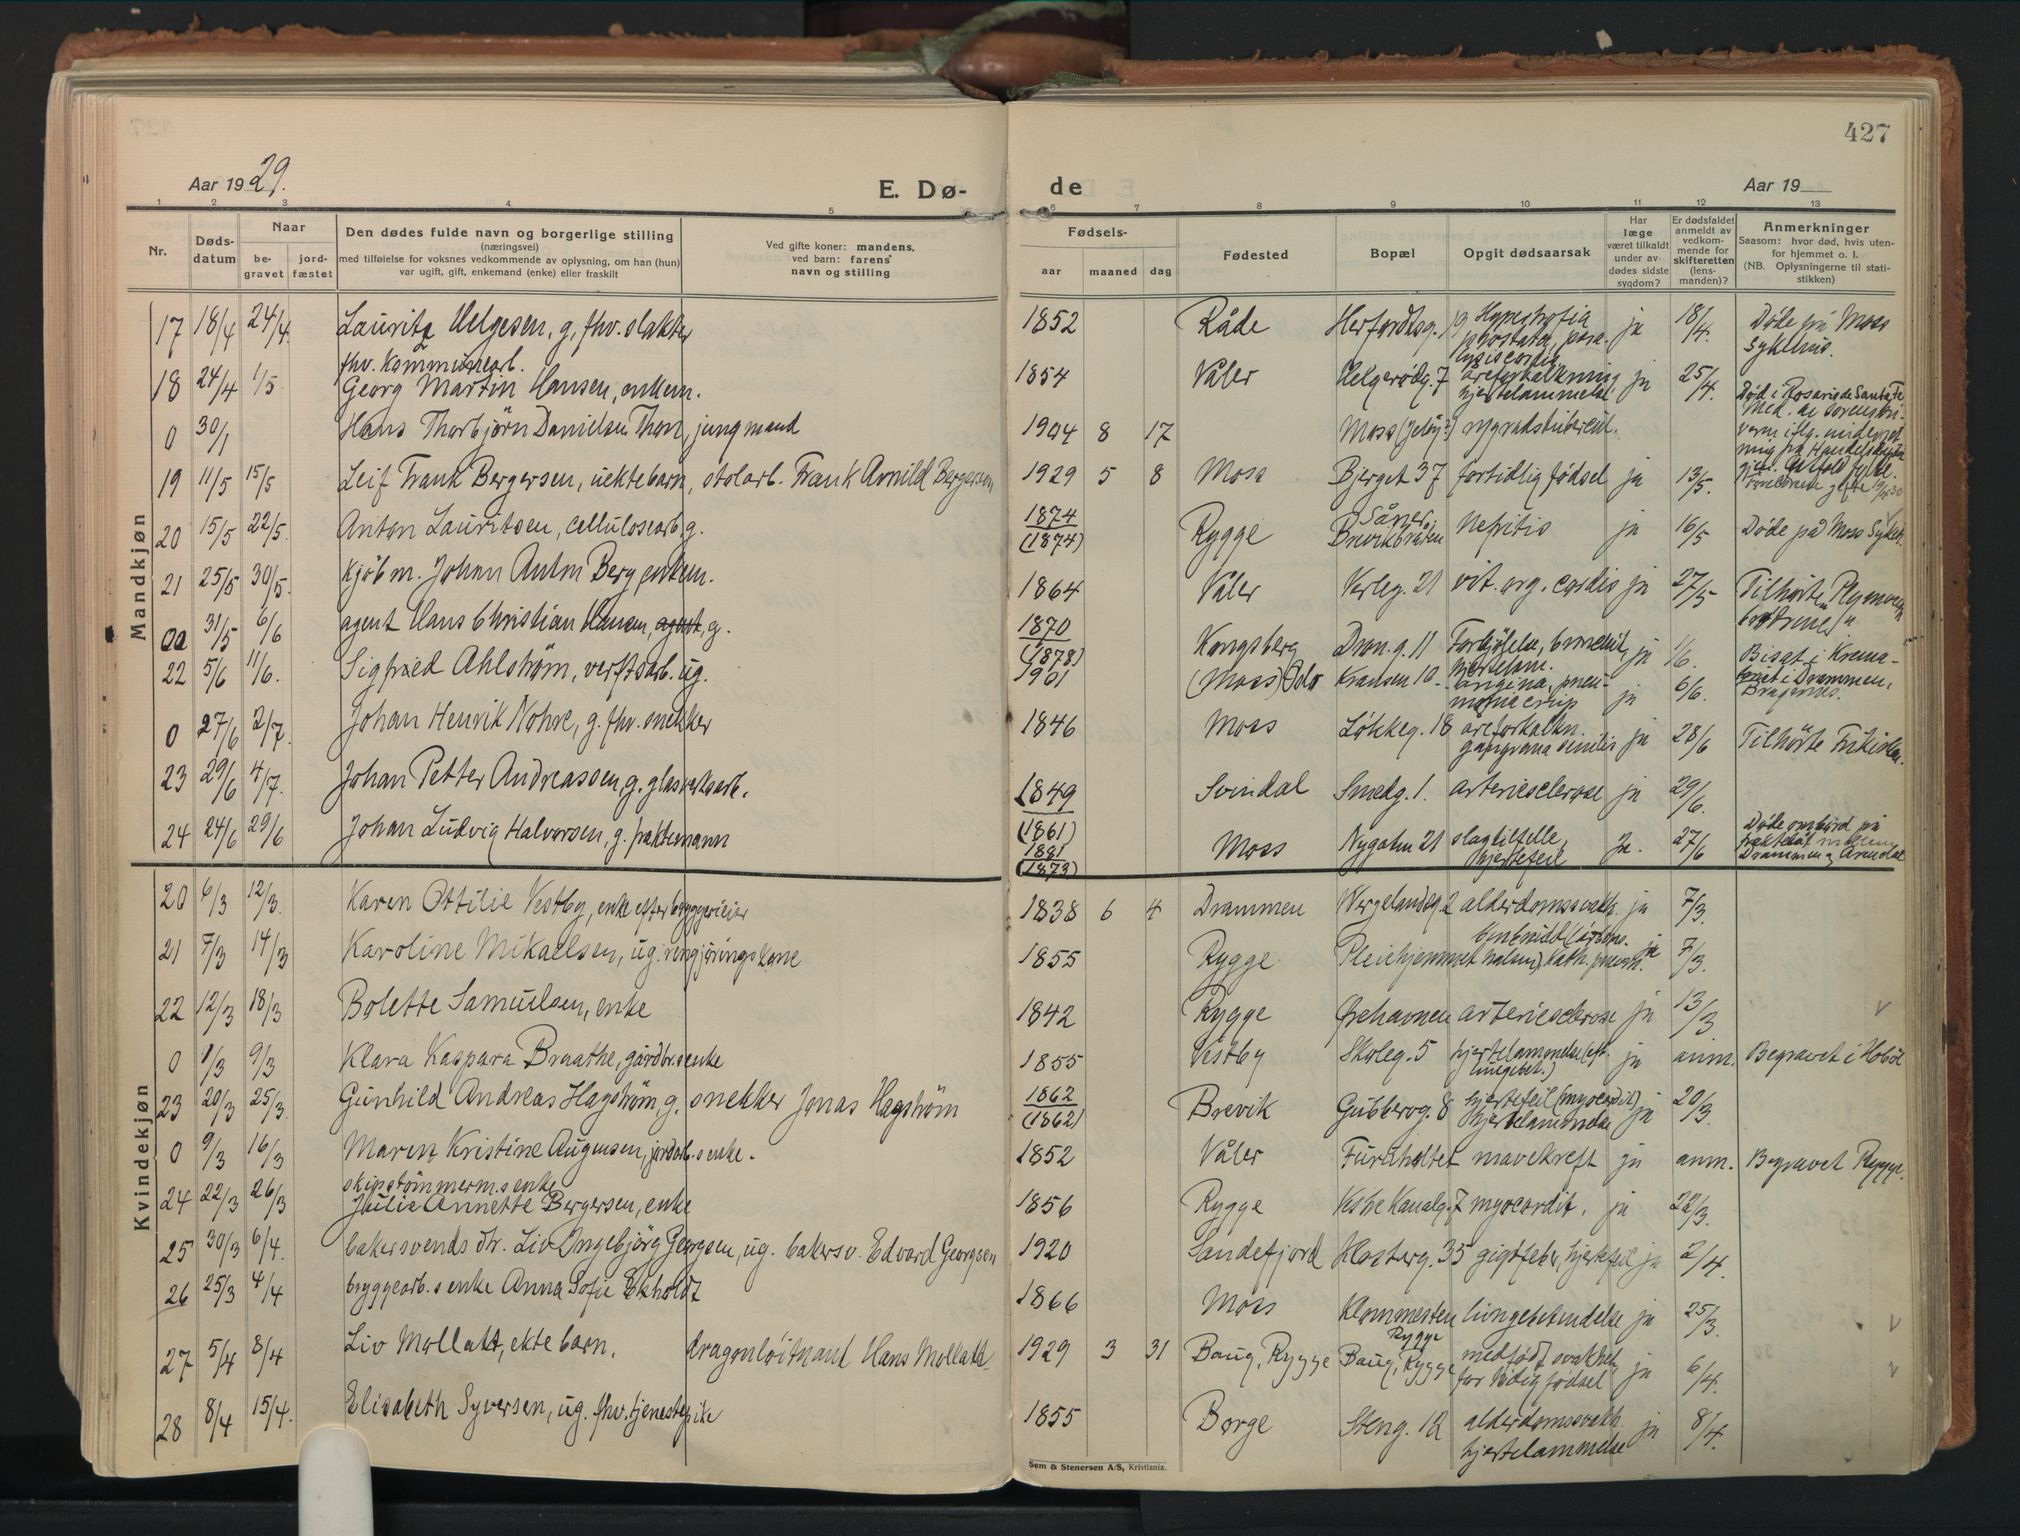 427
Aar 1929.
E. Dø-
de
Aar 19
1 2 3 4 5 6 7 8 9 10 11 12 13
Nr.
Døds-
datum
Naar
be-
gravet
jord-
fæstet
Den dødes fulde navn og borgerlige stilling
(næringsvei)
med tilføielse for voksnes vedkommende av oplysning, om han (hun)
var ugift, gift, enkemand (enke) eller fraskilt
Ved gifte koner: mandens,
ved barn: farens
navn og stilling
Fødsels-
aar maaned dag
Fødested
Bopæl
Opgit dødsaarsak
Har
læge
været tilkaldt
under av-
dødes sidste
sygdom?
Er dødsfaldet
anmeldt av
vedkom-
mende for
skifteretten
(lens-
manden)?
Anmerkninger
Saasom: hvor død, hvis uten-
for hjemmet o. l.
(NB. Oplysningerne til stati-
stikken)
Mandkjøn
17 18/4 24/4. Lauritz Helgesen, g, fhv. slakter 1852 Råde Herfordtsg. 19 Hypertrofia prostata, paralysis cordis ja 18/4. Døde på Moss Sykehus.
fhv. kommunearb.
18 24/4 1/5. Georg Martin Hansen, enkem. 1854 Våler Helgerødg. 7 åreforkalkning hjertelammelse ja 25/4.
0 30/1 Hans Thorbjörn Danielsen Thon, jungmand 1904 8 17 Moss (Jeløy) rygradstubercul. Død i Rosario de Santa Fe
19 11/5 15/5 Leif Frank Bergersen, uekte barn, stolarb. Frank Arnild Bergersen 1929 5 8 Moss Bjerget 37 fortidlig fødsel ja 13/5.
20 15/5 22/5. Anton Lauritsen, cellulosearb. g. 1874 (1874) Rygge Såner, Brevikbråten Nefritis ja 16/5 Døde på Moss Sykeh.
21 25/5 30/5. Kjöbm. Johan Anton Berg, enkem. 1864 Våler Verleg. 21 vit. org. cordis ja 27/5 Tilhørte Plymouth brødrene
0a 31/5 6/6 agent Hans Christian Hansen, agent, g. 1870 (1878) Kongsberg Dron.g. 11 Forkjölelse, bronchit, hjertelam. ja 1/6. Bisat i Krematoriet i Drammen, Bragernes.
22 5/6 11/6. Sigfried Ahlström, verftsarb. ug. 1901 (Moss) Oslo Kransen 10 angina, pneumonia crup ja 6/6.
0 27/6 2/7. Johan Henrik Nohre, g. fhv. snekker 1846 Moss Løkkeg. 18 åreforkalkn. gangrana senilis ja 28/6 Tilhörte Frikirken.
23 29/6 4/7. Johan Petter Andreassen, g. glasverksarb. 1849 Svindal Smedg. 1. arteriesclerose ja 29/6.
24 24/6 29/6 Johan Ludvig Halvorsen, g. fraktemann (1861) 1881 (1873) Moss Nygaten 21 slagtilfelle, hjertefeil ja. 27/6 Døde ombord på fraktebåt mellem Drammen og Arendal
Kvindekjøn
20 6/3 12/3. Karen Ottilie Vestby, enke efter bryggerieier 1838 6 4 Drammen Wergelandsg. 2 alderdomssvakh. ja 7/3.
21 7/3 14/3 Karoline Mikaelsen, ug. rengjøringskone 1855 Rygge Pleiehjemmet benbrudd (lårbenshalsen), kath. pneum. ja 7/3.
22 12/3 18/3 Bolette Samuelsen, enke 1842 Rygge Ørehavnen arteriesclerose ja 13/3 v
0 1/3 9/3 Klara Kaspara Braathe, gårdbr.s enke 1855 Vestby Skoleg. 5 hjertelammelse (eft. lungebet.) ja anm. Begravet i Hobøl
23 20/3 25/3. Gunhild Andreas Hagström, g. snekker Jonas Hagström 1862 (1862) Brevik Gubberog. 8 hjertefeil (myocardit) hjertelammelse ja 20/3.
0 9/3 16/3 Maren Kristine Augensen, jordarb.s enke. 1852 Våler Furuholtet mavekreft ja anm. Begravet Rygge.
skipstömmerm.s enke
24 22/3 26/3 Julie Annette Bergersen, enke 1856 Rygge Vestre Kanalg. 7 myocardit. ja 22/3.
25 30/3 6/4. bakersvends dtr. Liv Ingebjörg Georgsen, ug. bakersv. Edvard Georgsen 1920 Sandefjord Klosterg. 35 gigtfeber, hjertefeil ja 2/4.
26 25/3 4/4 bryggearb.s enke Anna Sofie Ekholdt 1866 Moss Klommesten Rygge lungebetendelse ja 25/3. v
27 5/4 8/4 Liv Mollatt, ekte barn. dragonløitnant Hans Mollatt 1929 3 31 Baug, Rygge Baug, Rygge medfödt svakhet, for tidlig fødsel ja 6/4. v
28 8/4 15/4. Elisabeth Syversen, ug. fhv. tjenestepike 1855 Borge Steng. 12 alderdomssvakh. hjertelammelse ja 8/4.
Sem & Stenersen A/S, Kristiania.